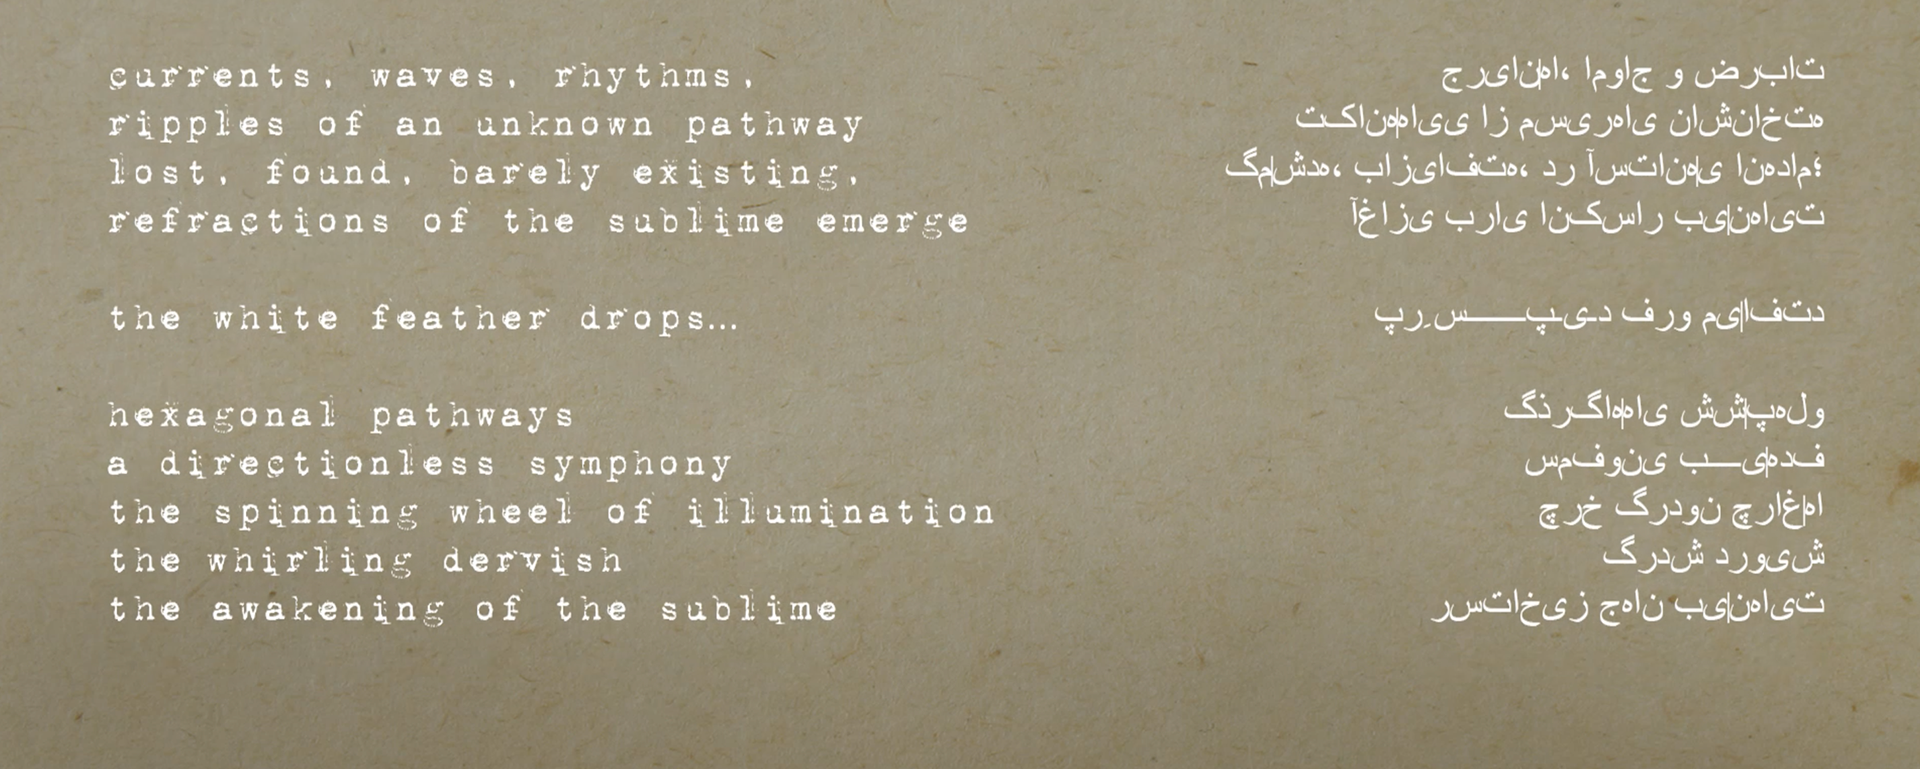 currents, waves, rhythms,
ripples of an unknown pathway
lost, found, barely existing,
refractions of the sublime emerge
the white feather drops...
hexagonal pathways
a directionless symphony
the spinning wheel of illumination
the whirling dervish
the awakening of the sublime
جریان‌ها، امواج و ضربات
تکانه‌هایی از مسیرهای ناشناخته
گم‌شده، بازیافته، در آستانه‌ی انهدام؛
آغازی برای انکسار بی‌نهایت
پرِ ســـپید فرو می‌افتد
گذرگاه‌های شش‌پهلو
سمفونی بـــی‌هدف
چرخ گردون چراغ‌ها
گردش درویش
رستاخیز جهان بی‌نهایت